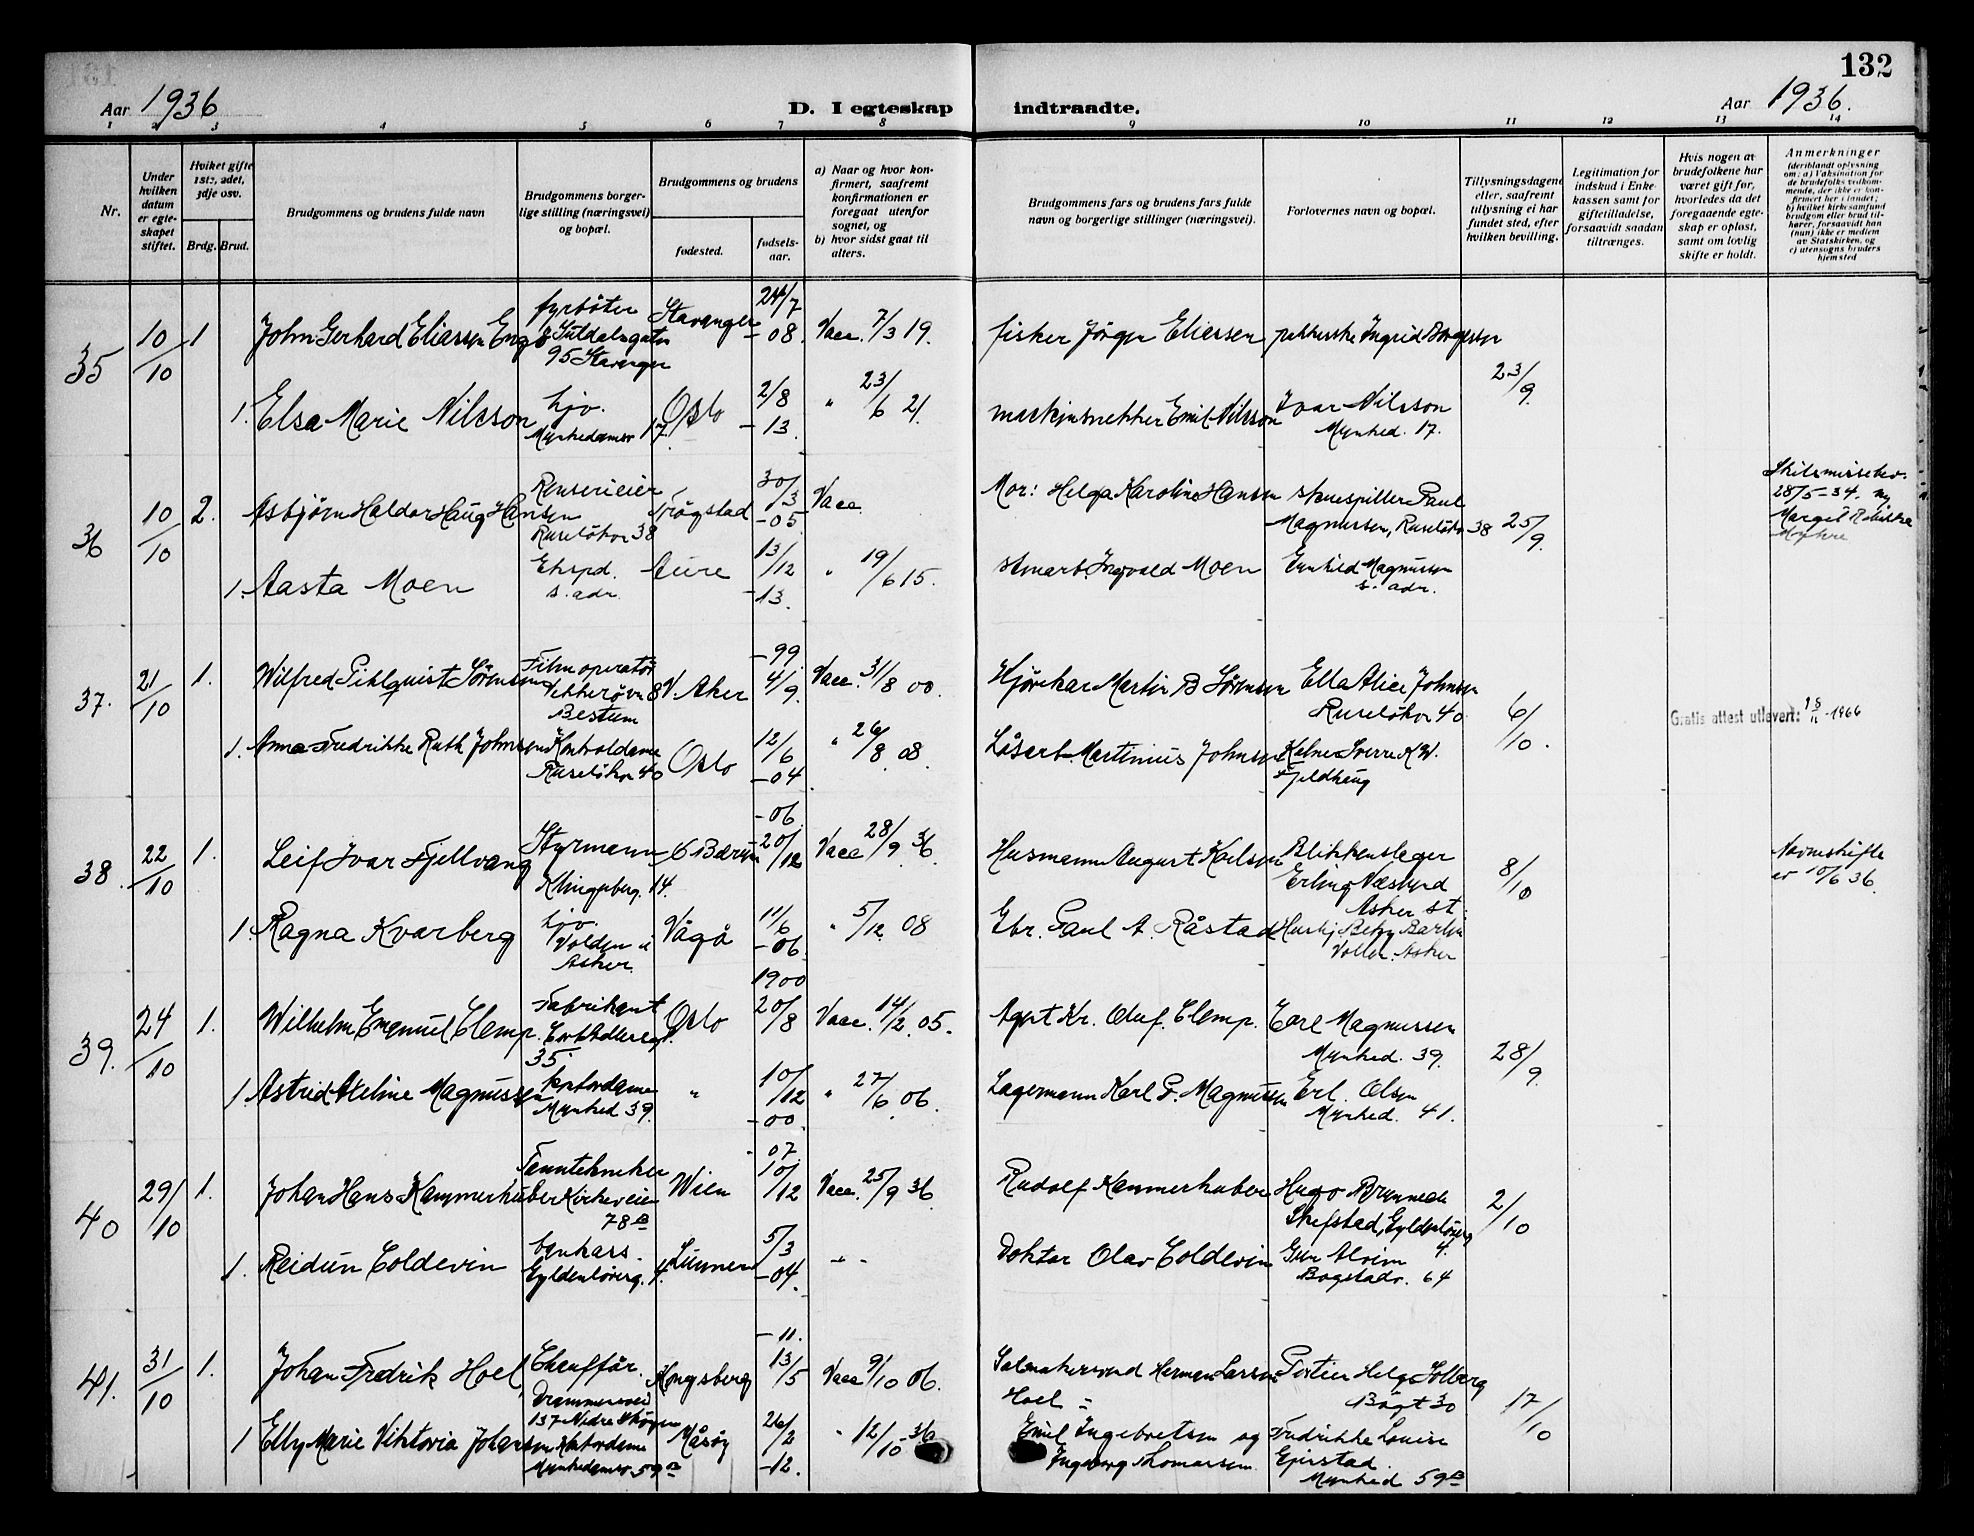 132
Aar 1936
D. I egteskap indtraadte.
Aar 1936.
1 2 3 4 5 6 7 8 9 10 11 12 13 14
Nr.
Under hvilken datum er egteskapet stiftet.
Hviket gifte 1ste, 2det, 3dje osv.
Brdg. Brud.
Brudgommens og brudens fulde navn
Brudgommens borgerlige stilling (næringsvei) og bopæl.
Brudgommens og brudens
fødested.
fødselsaar.
a) Naar og hvor konfirmert, saafremt konfirmationen er foregaat utenfor sognet, og
b) hvor sidst gaat til alters.
Brudgommens fars og brudens fars fulde navn og borgerlige stillinger (næringsvei).
Forlovernes navn og bopæl.
Tillysningsdagene eller, saafremt tillysning ei har fundet sted, efter hvilken bevilling.
Legitimation for indskud i Enkekassen samt for giftetilladelse, forsaavidt saadan tiltrænges.
Hvis nogen av brudefolkene har været gift før, hvorledes da det foregaaende egteskap er opløst, samt om lovlig skifte er holdt.
Anmerkninger
(deriblandt oplysning om: a) Vaksination for de brudefolks vedkommende, der ikke er konfirmert her i landet; b) hvilket kirkesamfund brudgom eller brud tilhører, forsaavidt han (hun) ikke er medlem av Statskirken, og c) utensogns bruders hjemsted
35 10/10 1 John Gerhard Eliassen Enge fyrbøter Suldalsgaten 95 Stavanger Stavanger 24/7 -08. Vacc. 7/3 19. fisker Jörgen Eliassen Ingrid 23/9.
1. Elsa Marie Nilsson hjv. Munkedamsv 17. Oslo 2/8 -13. " 23/6 21. maskinsnekker Emil Nilsson Ivar Nilsson Munked. 17.
36 10/10 2. Asbjørn Haldor Haug Hansen Renserieier Ruseløkv 38 Trøgstad 30/3 -05 Vacc. Mor: Helga Karoline Hansen skuespiller Paul Magnussen, Ruseløkv 38 25/9. Skilsmissebev. 28/5-34. Margit Myhre
1. Aasta Moen Ekspd. s. adr. Aure 13/12 -13. " 19/6 15. Ingvald Moen Magnussen s. adr.
37. 21/10 1. Wilfred Pihlquist Sørensen Filmoperatør Vækkerøvn 8 Bestum V. Aker -99 4/9. Vacc. 31/8 00. Martin B Sörensen Ella Alice Johnsen Ruseløkv 40 6/10. Gratis attest utlevert: 18/11-1966
1. Anna Fredrikke Ruth Johnsen Kontordame Ruseløkv 40 Oslo 12/6 -04 " 26/8 08. Martinius Johnsen Sverre K W. Fjeldhaug
38. 22/10 1. Leif Ivar Fjellvang Styrmann Klingenberg. 14. Bærum -06. 20/12 Vacc 28/9 36. Husmann August Karlsen Blikkenslager Erling Næslund Asker st. 8/10 Navneskifte av 10/6 36.
1. Ragna Kvarberg hjv. Volden i Asker. Vågå 11/6 -06. " 5/12 08 Gbr. Paul A. Råstad Voller. Asker
39. 24/10 1. Wilhelm Emanuel Clemp. Fabrikant Cort Adlersgt. 35 Oslo 1900 20/8 Vacc. 14/2 05. Agent Kr. Oluf. Clemp. Earl Magnussen Munked. 39. 28/9.
1. Astrid Helene Magnussen kontordame Munked 39. " 10/12 -00. " 27/6 06. Lagermann Karl F. Magnussen Erl. Olsen Munked. 41.
40 29/10 1. Johan Hans Kammerhuber Tanntekniker Kirkeveien 78B Wien -07. 10/12 Vacc. 25/9 36 Rudolf Kammerhuber Hugo Skefstad, Gyldenlövesg 4. 2/10
1. Reidun Coldevin bankass. Gyldenlövesg. 4. Lunner 5/3 -04. - " - Doktor Olav Coldevin Alvim Bogstadv. 64
41. 31/10 1. Johan Fredrik Hoel Chauffør. Drammensvei 137 Nedre Skøyen Kongsberg -11. 13/5 Vacc 9/10 06. Salmakersvend Herman Larsen Hoel Portier Helge Solberg Bögt 30 17/10
1 Elly Marie Viktoria Johansen Kontordame Munkedamsv. 59B Måsøy 26/2 -12. " 12/10-36 Emil Ingebretsen og Ingeborg Thomassen. Fredrikke Louise Gjerstad. Munked 59B